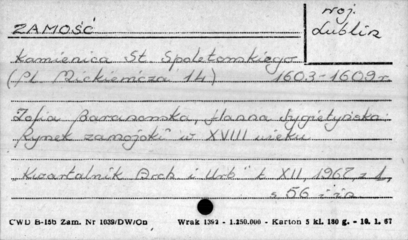 ZAMOŚĆ
woj.
Lublin
Kamienica St. Spoletowskiego
(Pl. Mickiewicza 14) 1603-1609 r.
Zofia Baranowska, Hanna Sygietyńska
Rynek zamojski" w XVIII wieku
"Kwartalnik Arch i Urb" t XII, 1967, z 1,
s. 56 i in
CWD B-15b Zam. Nr 1039/DW/Ob Wrak 1392 - 1.250.000 - Karton 5 kl. 180 g. - 10. 1. 67